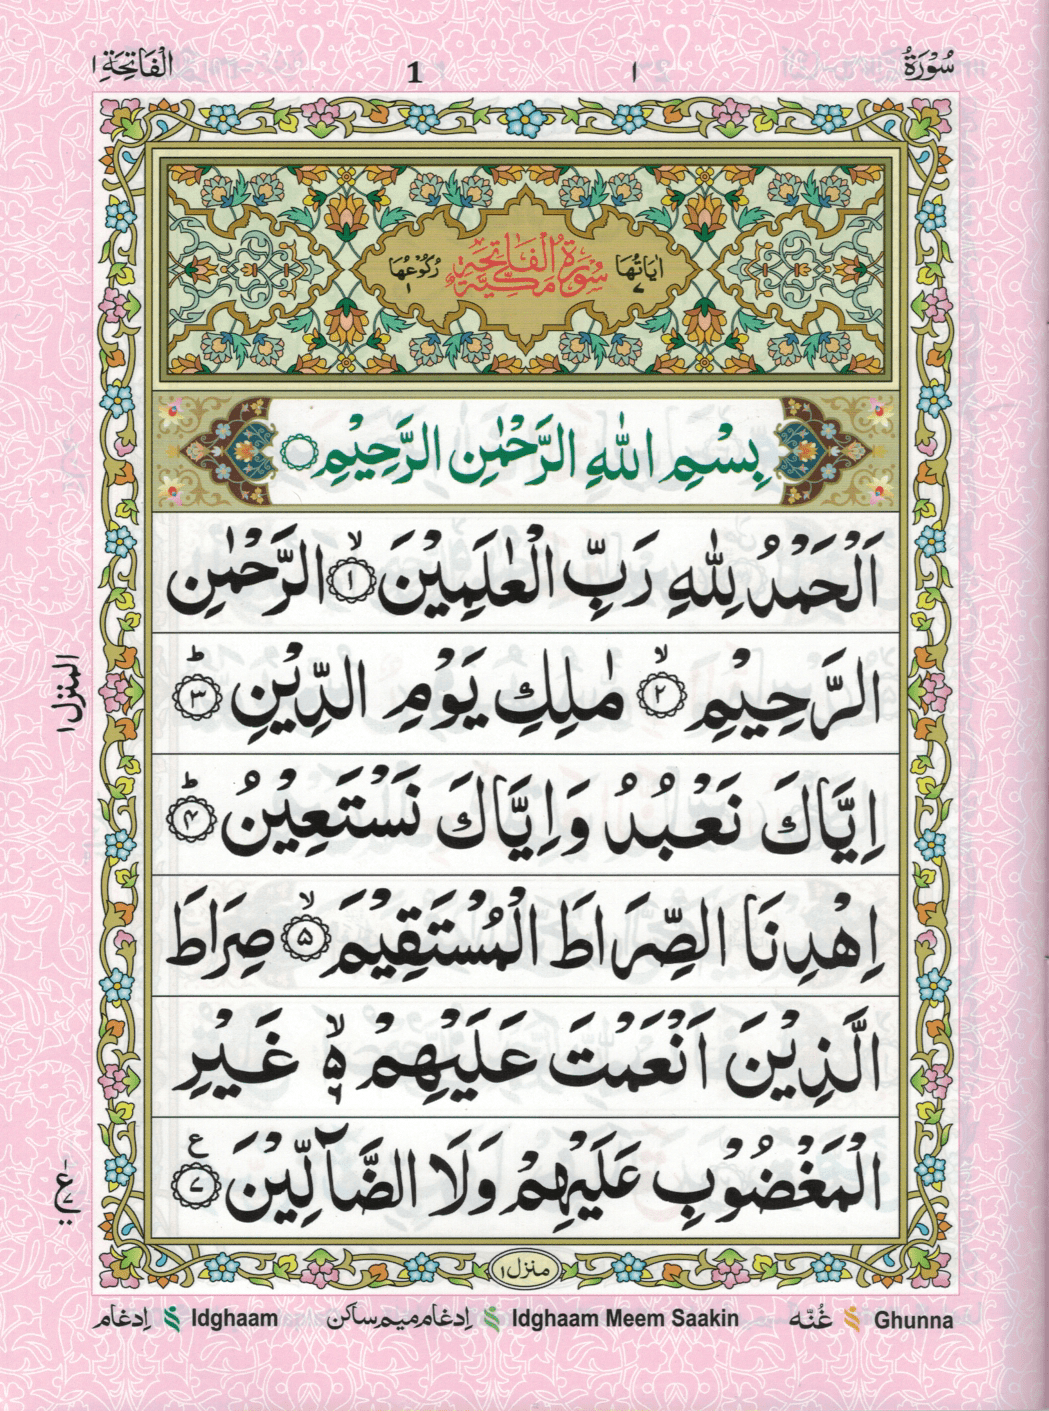 سُوْرَةُ ۱ 1 الْفَاتِحَةِ ۱
اٰيَاتُهَا ۷ سُوْرَةُ الْفَاتِحَةِ مَكِّيَّةٌ رُكُوْعُهَا ۱
بِسْمِ اللّٰهِ الرَّحْمٰنِ الرَّحِيْمِ
اَلْحَمْدُ لِلّٰهِ رَبِّ الْعٰلَمِيْنَ ۙ﴿۱﴾ الرَّحْمٰنِ
الرَّحِيْمِ ۙ﴿۲﴾ مٰلِكِ يَوْمِ الدِّيْنِ ؕ﴿۳﴾
اِيَّاكَ نَعْبُدُ وَاِيَّاكَ نَسْتَعِيْنُ ؕ﴿۴﴾
اِهْدِنَا الصِّرَاطَ الْمُسْتَقِيْمَ ۙ﴿۵﴾ صِرَاطَ
الَّذِيْنَ اَنْعَمْتَ عَلَيْهِمْ ۙ۵ ۶ غَيْرِ
الْمَغْضُوْبِ عَلَيْهِمْ وَلَا الضَّآلِّيْنَ ﴿۷﴾ ع
المنزل ۱
ع
منزل ۱
غُنَّه Ghunna
اِدغام میم ساکن Idghaam Meem Saakin
اِدغام Idghaam